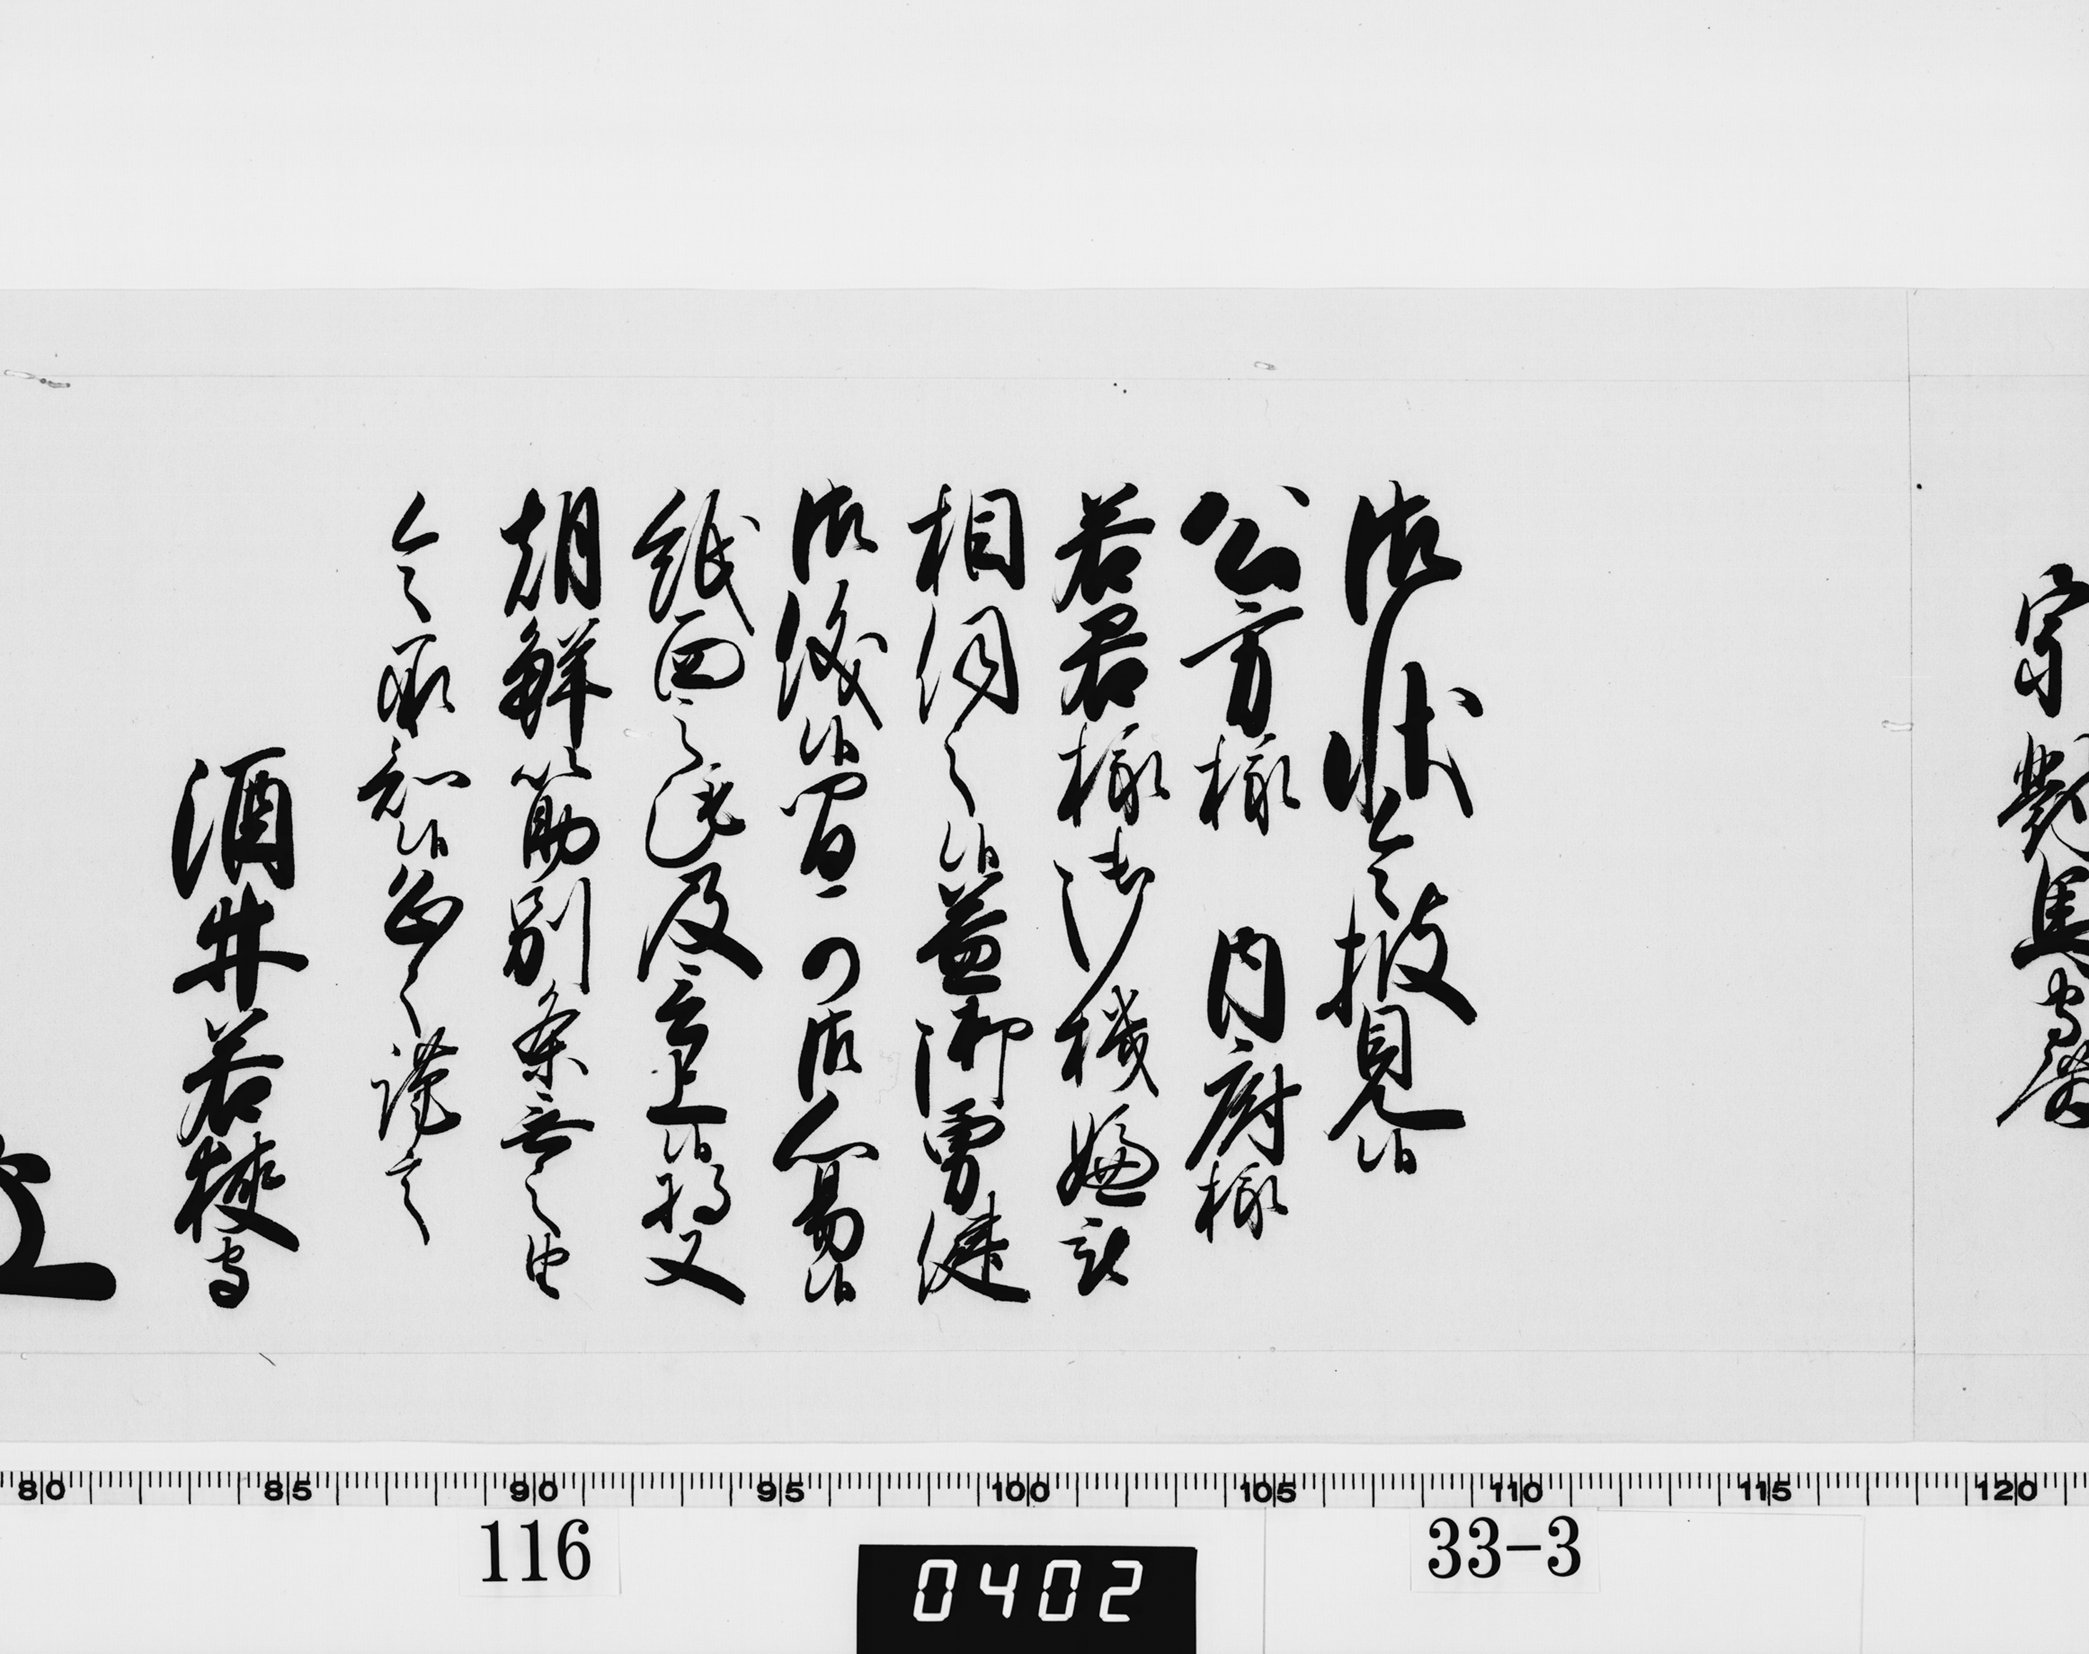 宗對馬守殿
御状令披見候
公方様 内府様
若君様御機嫌被
相伺之候益御勇健
御儀候間可御心易候
紙面之趣及言上候将又
朝鮮筋別条無之由
令承知候恐々謹言
酒井若狭守
80 85 90 95 100 105 110 115 120
116
33-3
0402